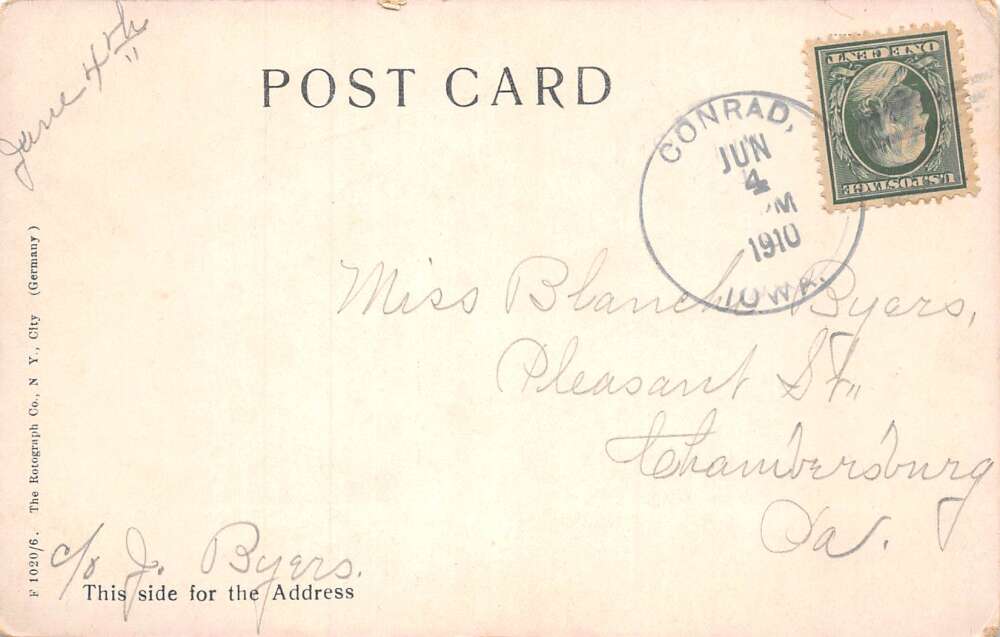 June 4th
POST CARD
CONRAD,
JUN
4
M
1910
IOWA.
ONE CENT
U.S. POSTAGE
Miss Blanche Byers,
Pleasant St,
Chambersburg
Pa.
c/o J. Byers.
This side for the Address
F 1020/6. The Rotograph Co., N Y., City (Germany)